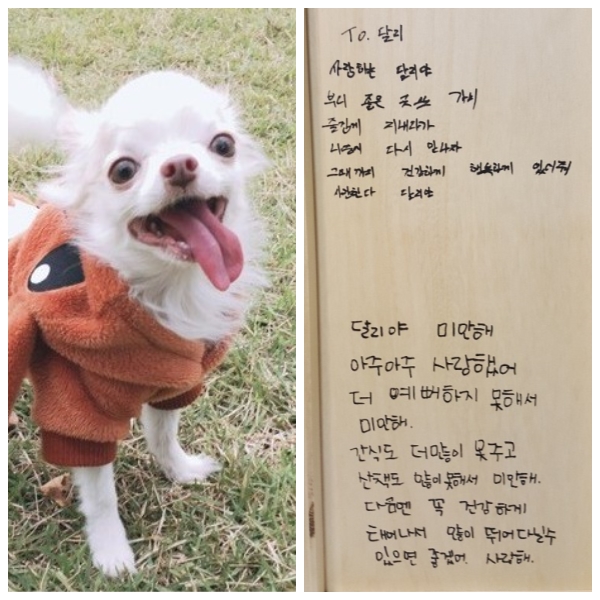 To. 달리
사랑하는 달리야
부디 좋은 곳 가서
즐겁게 지내다가
나에게 다시 만나자
그때까지 건강하게 행복하게 있어줘
사랑한다 달리야
달리야 미안해
아주아주 사랑했어
더 예뻐하지 못해서
미안해.
간식도 더많이 못주고
산책도 많이못해서 미안해.
다음엔 꼭 건강하게
태어나서 많이 뛰어다닐수
있으면 좋겠어. 사랑해.